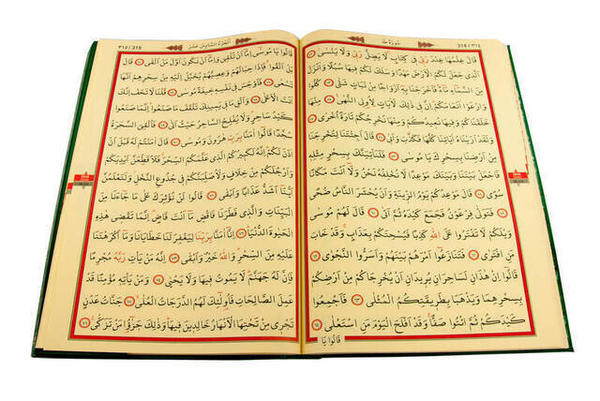 سُورَةُ طٰهٰ ٣١٤/314
قَالَ عِلْمُهَا عِنْدَ رَبِّي فِي كِتَابٍ لَا يَضِلُّ رَبِّي وَلَا يَنْسَى ﴿٥٢﴾
الَّذِي جَعَلَ لَكُمُ الْأَرْضَ مَهْدًا وَسَلَكَ لَكُمْ فِيهَا سُبُلًا وَأَنْزَلَ
مِنَ السَّمَاءِ مَاءً فَأَخْرَجْنَا بِهِ أَزْوَاجًا مِنْ نَبَاتٍ شَتَّى ﴿٥٣﴾ كُلُوا
وَارْعَوْا أَنْعَامَكُمْ إِنَّ فِي ذَلِكَ لَآيَاتٍ لِأُولِي النُّهَى ﴿٥٤﴾ مِنْهَا
خَلَقْنَاكُمْ وَفِيهَا نُعِيدُكُمْ وَمِنْهَا نُخْرِجُكُمْ تَارَةً أُخْرَى ﴿٥٥﴾
وَلَقَدْ أَرَيْنَاهُ آيَاتِنَا كُلَّهَا فَكَذَّبَ وَأَبَى ﴿٥٦﴾ قَالَ أَجِئْتَنَا لِتُخْرِجَنَا
مِنْ أَرْضِنَا بِسِحْرِكَ يَا مُوسَى ﴿٥٧﴾ فَلَنَأْتِيَنَّكَ بِسِحْرٍ مِثْلِهِ
فَاجْعَلْ بَيْنَنَا وَبَيْنَكَ مَوْعِدًا لَا نُخْلِفُهُ نَحْنُ وَلَا أَنْتَ مَكَانًا
سُوًى ﴿٥٨﴾ قَالَ مَوْعِدُكُمْ يَوْمُ الزِّينَةِ وَأَنْ يُحْشَرَ النَّاسُ ضُحًى
﴿٥٩﴾ فَتَوَلَّى فِرْعَوْنُ فَجَمَعَ كَيْدَهُ ثُمَّ أَتَى ﴿٦٠﴾ قَالَ لَهُمْ مُوسَى
وَيْلَكُمْ لَا تَفْتَرُوا عَلَى اللَّهِ كَذِبًا فَيُسْحِتَكُمْ بِعَذَابٍ وَقَدْ خَابَ
مَنِ افْتَرَى ﴿٦١﴾ فَتَنَازَعُوا أَمْرَهُمْ بَيْنَهُمْ وَأَسَرُّوا النَّجْوَى ﴿٦٢﴾
قَالُوا إِنْ هَذَانِ لَسَاحِرَانِ يُرِيدَانِ أَنْ يُخْرِجَاكُمْ مِنْ أَرْضِكُمْ
بِسِحْرِهِمَا وَيَذْهَبَا بِطَرِيقَتِكُمُ الْمُثْلَى ﴿٦٣﴾ فَأَجْمِعُوا
كَيْدَكُمْ ثُمَّ ائْتُوا صَفًّا وَقَدْ أَفْلَحَ الْيَوْمَ مَنِ اسْتَعْلَى ﴿٦٤﴾
قَالُوا يَا
اَلْجُزْءُ السَّادِسُ عَشَرَ ٣١٥/315
قَالُوا يَا مُوسَى إِمَّا أَنْ تُلْقِيَ وَإِمَّا أَنْ نَكُونَ أَوَّلَ مَنْ أَلْقَى ﴿٦٥﴾ قَالَ
بَلْ أَلْقُوا فَإِذَا حِبَالُهُمْ وَعِصِيُّهُمْ يُخَيَّلُ إِلَيْهِ مِنْ سِحْرِهِمْ أَنَّهَا
تَسْعَى ﴿٦٦﴾ فَأَوْجَسَ فِي نَفْسِهِ خِيفَةً مُوسَى ﴿٦٧﴾ قُلْنَا لَا تَخَفْ إِنَّكَ
أَنْتَ الْأَعْلَى ﴿٦٨﴾ وَأَلْقِ مَا فِي يَمِينِكَ تَلْقَفْ مَا صَنَعُوا إِنَّمَا صَنَعُوا
كَيْدُ سَاحِرٍ وَلَا يُفْلِحُ السَّاحِرُ حَيْثُ أَتَى ﴿٦٩﴾ فَأُلْقِيَ السَّحَرَةُ
سُجَّدًا قَالُوا آمَنَّا بِرَبِّ هَارُونَ وَمُوسَى ﴿٧٠﴾ قَالَ آمَنْتُمْ لَهُ قَبْلَ
أَنْ آذَنَ لَكُمْ إِنَّهُ لَكَبِيرُكُمُ الَّذِي عَلَّمَكُمُ السِّحْرَ فَلَأُقَطِّعَنَّ أَيْدِيَكُمْ
وَأَرْجُلَكُمْ مِنْ خِلَافٍ وَلَأُصَلِّبَنَّكُمْ فِي جُذُوعِ النَّخْلِ وَلَتَعْلَمُنَّ
أَيُّنَا أَشَدُّ عَذَابًا وَأَبْقَى ﴿٧١﴾ قَالُوا لَنْ نُؤْثِرَكَ عَلَى مَا جَاءَنَا مِنَ
الْبَيِّنَاتِ وَالَّذِي فَطَرَنَا فَاقْضِ مَا أَنْتَ قَاضٍ إِنَّمَا تَقْضِي هَذِهِ
الْحَيَاةَ الدُّنْيَا ﴿٧٢﴾ إِنَّا آمَنَّا بِرَبِّنَا لِيَغْفِرَ لَنَا خَطَايَانَا وَمَا أَكْرَهْتَنَا
عَلَيْهِ مِنَ السِّحْرِ وَاللَّهُ خَيْرٌ وَأَبْقَى ﴿٧٣﴾ إِنَّهُ مَنْ يَأْتِ رَبَّهُ مُجْرِمًا
فَإِنَّ لَهُ جَهَنَّمَ لَا يَمُوتُ فِيهَا وَلَا يَحْيَى ﴿٧٤﴾ وَمَنْ يَأْتِهِ مُؤْمِنًا قَدْ
عَمِلَ الصَّالِحَاتِ فَأُولَئِكَ لَهُمُ الدَّرَجَاتُ الْعُلَى ﴿٧٥﴾ جَنَّاتُ عَدْنٍ
تَجْرِي مِنْ تَحْتِهَا الْأَنْهَارُ خَالِدِينَ فِيهَا وَذَلِكَ جَزَاءُ مَنْ تَزَكَّى ﴿٧٦﴾